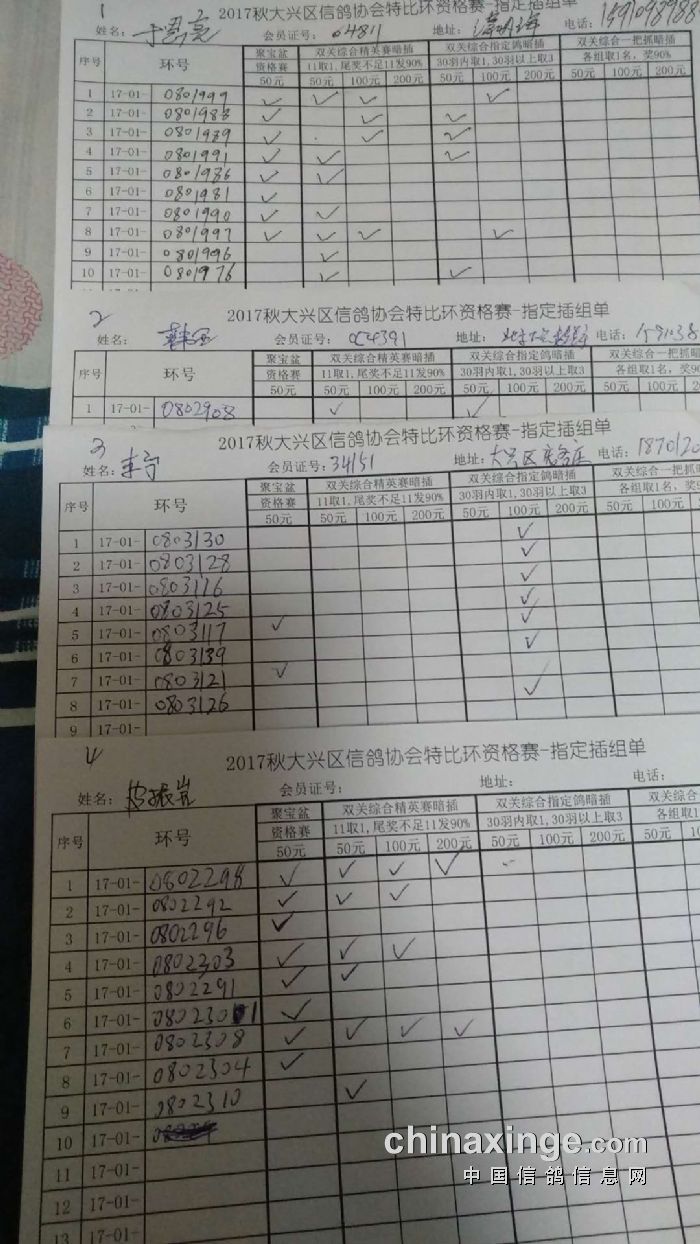 1
2017秋大兴区信鸽协会特比环资格赛-指定插组单
姓名: 于 亮 会员证号: 04811 地址: 电话:
序号 环号 聚宝盆资格赛 双关综合精英赛暗插 双关综合指定鸽暗插 双关综合一把抓暗插
11取1,尾奖不足11发90% 30羽内取1,30羽以上取3 各组取1名,奖90%
50元 50元 100元 200元 50元 100元 200元 50元 100元 200元
1 17-01- 0801999 ✓ ✓ ✓ ✓
2 17-01- 0801988 ✓ ✓ ✓
3 17-01- 0801989 ✓ ✓ ✓
4 17-01- 0801991 ✓ ✓ ✓
5 17-01- 0801986 ✓ ✓
6 17-01- 0801981 ✓
7 17-01- 0801990 ✓ ✓
8 17-01- 0801997 ✓ ✓ ✓ ✓
9 17-01- 0801996 ✓
10 17-01- 0801976 ✓ ✓
2
2017秋大兴区信鸽协会特比环资格赛-指定插组单
姓名: 会员证号: 地址: 电话:
序号 环号 聚宝盆资格赛 双关综合精英赛暗插 双关综合指定鸽暗插 双关综合一把抓暗
11取1,尾奖不足11发90% 30羽内取1,30羽以上取3 各组取1名,奖9
50元 50元 100元 200元 50元 100元 200元 50元 100元 200
1 17-01- 0802908 ✓ ✓
3
2017秋大兴区信鸽协会特比环资格赛-指定插组单
姓名: 李宁 会员证号: 34151 地址: 大兴区 电话: 1870120
序号 环号 聚宝盆资格赛 双关综合精英赛暗插 双关综合指定鸽暗插 双关综合一把抓
11取1,尾奖不足11发90% 30羽内取1,30羽以上取3 各组取1名,
50元 50元 100元 200元 50元 100元 200元 50元 100元
1 17-01- 0803130 ✓
2 17-01- 0803128 ✓
3 17-01- 0803116 ✓
4 17-01- 0803125 ✓
5 17-01- 0803117 ✓ ✓
6 17-01- 0803139 ✓
7 17-01- 0803121 ✓
8 17-01- 0803126 ✓
9 17-01-
4
2017秋大兴区信鸽协会特比环资格赛-指定插组单
姓名: 会员证号: 地址: 电话:
序号 环号 聚宝盆资格赛 双关综合精英赛暗插 双关综合指定鸽暗插 双关综合
11取1,尾奖不足11发90% 30羽内取1,30羽以上取3 各组取1
50元 50元 100元 200元 50元 100元 200元 50元
1 17-01- 0802298 ✓ ✓ ✓ ✓
2 17-01- 0802292 ✓ ✓ ✓
3 17-01- 0802296 ✓
4 17-01- 0802303 ✓ ✓ ✓
5 17-01- 0802291 ✓ ✓
6 17-01- 0802301 ✓
7 17-01- 0802308 ✓ ✓ ✓ ✓
8 17-01- 0802304 ✓
9 17-01- 0802310 ✓
10 17-01-
11 17-01-
12 17-01-
13 17-01-
chinaxinge.com
中国信鸽信息网